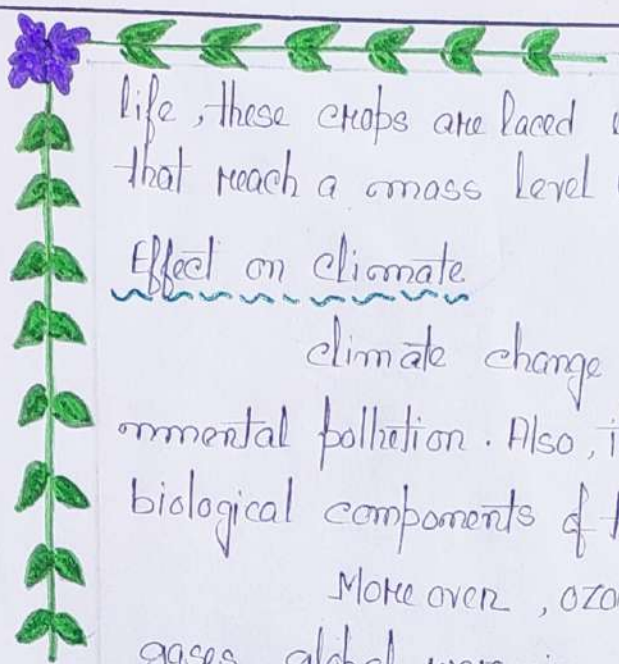 life, these crops are laced
that reach a mass level
Effect on climate
climate change
nmental pollution. Also, i
biological components of t
More over, ozo
gases, global warmin